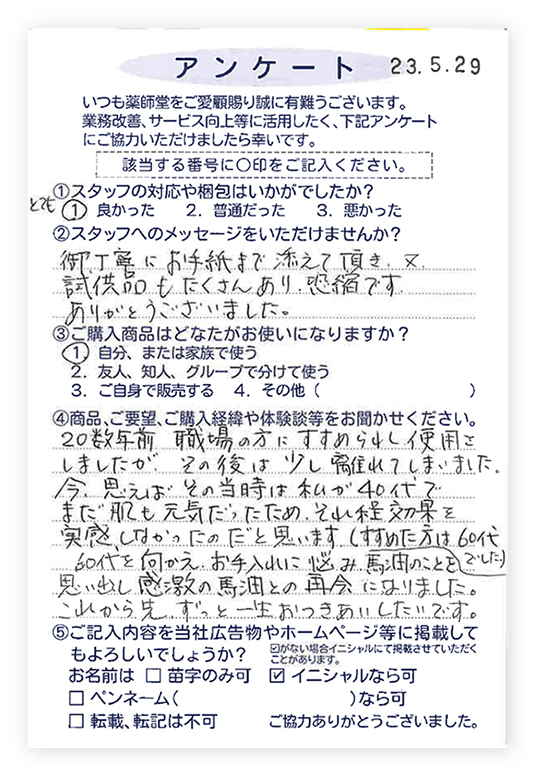 アンケート 23.5.29
いつも薬師堂をご愛顧賜り誠に有難うございます。
業務改善、サービス向上等に活用したく、下記アンケート
にご協力いただけましたら幸いです。
該当する番号に〇印をご記入ください。
①スタッフの対応や梱包はいかがでしたか?
とても 1 良かった 2. 普通だった 3. 悪かった
②スタッフへのメッセージをいただけませんか?
御丁寧にお手紙まで添えて頂き、又、
試供品もたくさんあり、恐縮です
ありがとうございました。
③ご購入商品はどなたがお使いになりますか?
1 自分、または家族で使う
2. 友人、知人、グループで分けて使う
3. ご自身で販売する 4. その他( )
④商品、ご要望、ご購入経緯や体験談等をお聞かせください。
20数年前 職場の方にすすめられし使用を
しましたが、その後は少し離れてしまいました。
今、思えばその当時は私が40代で
まだ肌も元気だったため、それ程効果を
実感しなかったのだと思います(すすめた方は60代
でした)
60代を向かえ、お手入れに悩み馬油のことを
思い出し感激の馬油との再会になりました。
これから先、ずっと一生おつきあいしたいです。
⑤ご記入内容を当社広告物やホームページ等に掲載して
もよろしいでしょうか? ☑がない場合イニシャルにて掲載させていただく
ことがあります。
お名前は □ 苗字のみ可 ☑ イニシャルなら可
□ ペンネーム( )なら可
□ 転載、転記は不可 ご協力ありがとうございました。